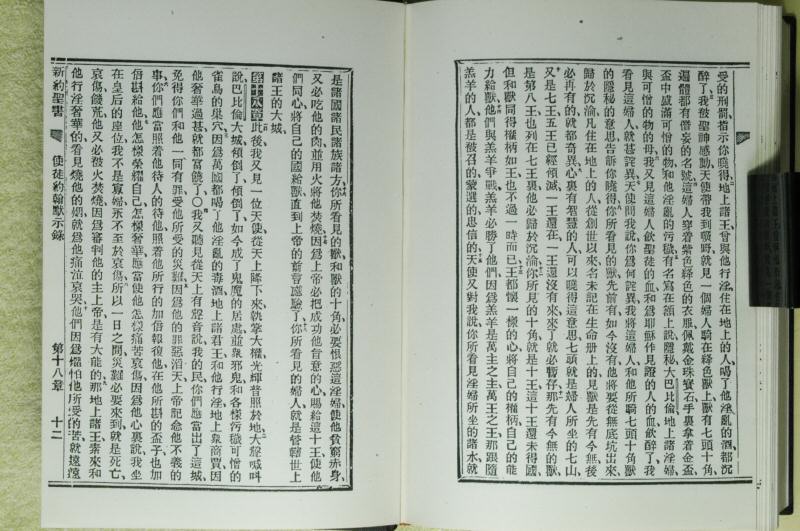 受的刑罰指示你曉得地上諸王曾與他行淫住在地上的人喝了他淫亂的酒都沉
醉了我被聖神感動天使帶我到曠野就見一個婦人騎在絳色獸上獸有七頭十角
遍體都有僭妄的名號這婦人穿着紫色絳色的衣服佩戴金珠寶石手裏拿着金盃
盃中盛滿可憎的物和他淫亂的污穢有名寫在額上說隱秘大巴比倫地上諸淫婦
與可憎的物的母我又見這婦人飲聖徒的血和爲耶穌作見證的人的血飲醉了我
看見這婦人就甚詫異天使問我說你爲何詫異我將這婦人和他所騎七頭十角獸
的隱秘的意思告訴你曉得你所看見的獸先前有如今沒有他將要從無底坑出來
歸於沉淪凡住在地上的人從創世以來名未記在生命册上的見獸是先有今無後
必再有的就都奇異心裏有智慧的人可以曉得這意思七頭就是婦人所坐的七山
又是七王五王已經傾滅一王還在一王還沒有來來了就必暫存那先有今無的獸
是第八王也列在七王裏他必歸於沉淪你所見的十角就是十王這十王還未得國
但和獸同得權柄如王也不過一時而已王都懷一樣的心將自己的權柄自己的能
力給獸他們與羔羊爭戰羔羊必勝了他們因爲羔羊是萬主之主萬王之王那跟隨
羔羊的人都是被召的蒙選的忠信的天使又對我說你所看見淫婦所坐的諸水就
是諸國諸民諸族諸方你所看見的獸和獸的十角必要恨惡這淫婦使他貧窮赤身
又必吃他的肉並用火將他焚燒因爲上帝必把成功他旨意的心賜給這十王使他
們同心將自己的國給獸直到上帝的前言應驗了你所看見的婦人就是管轄世上
諸王的大城
第十八章此後我又見一位天使從天上降下來就掌大權光輝普照於地大聲喊叫
說巴比倫大城傾倒了傾倒了如今成了鬼魔的居處並衆邪鬼和各樣污穢可憎的
雀鳥的巢穴因爲萬國都喝了他淫亂的毒酒地上諸君王和他行淫地上衆商賈因
他奢華過甚就都富饒了〇我又聽見從天上有聲音說我的民你們應當出了這城
免得你們和他一同有罪受他所受的災難因爲他的罪惡滔天上帝記念他不義的
事你們應當照着他待人的待他照着他所行的加倍報復他在他斟的盃子也加
倍斟給他他怎樣榮耀自己怎樣奢華應當使他怎樣痛苦哀傷因爲他心裏說我坐
在皇后的座位我不是寡婦永不至於哀傷所以一日之間災難必要來到就是死亡
哀傷饑荒他又必被火焚燒因爲審判他的主上帝是有大能的那地上諸王素來和
他行淫奢華的看見燒他的烟就爲他痛泣哀哭他們因爲懼怕他所受的苦就遠遠
新約聖書 使徒約翰默示錄 第十八章 十二